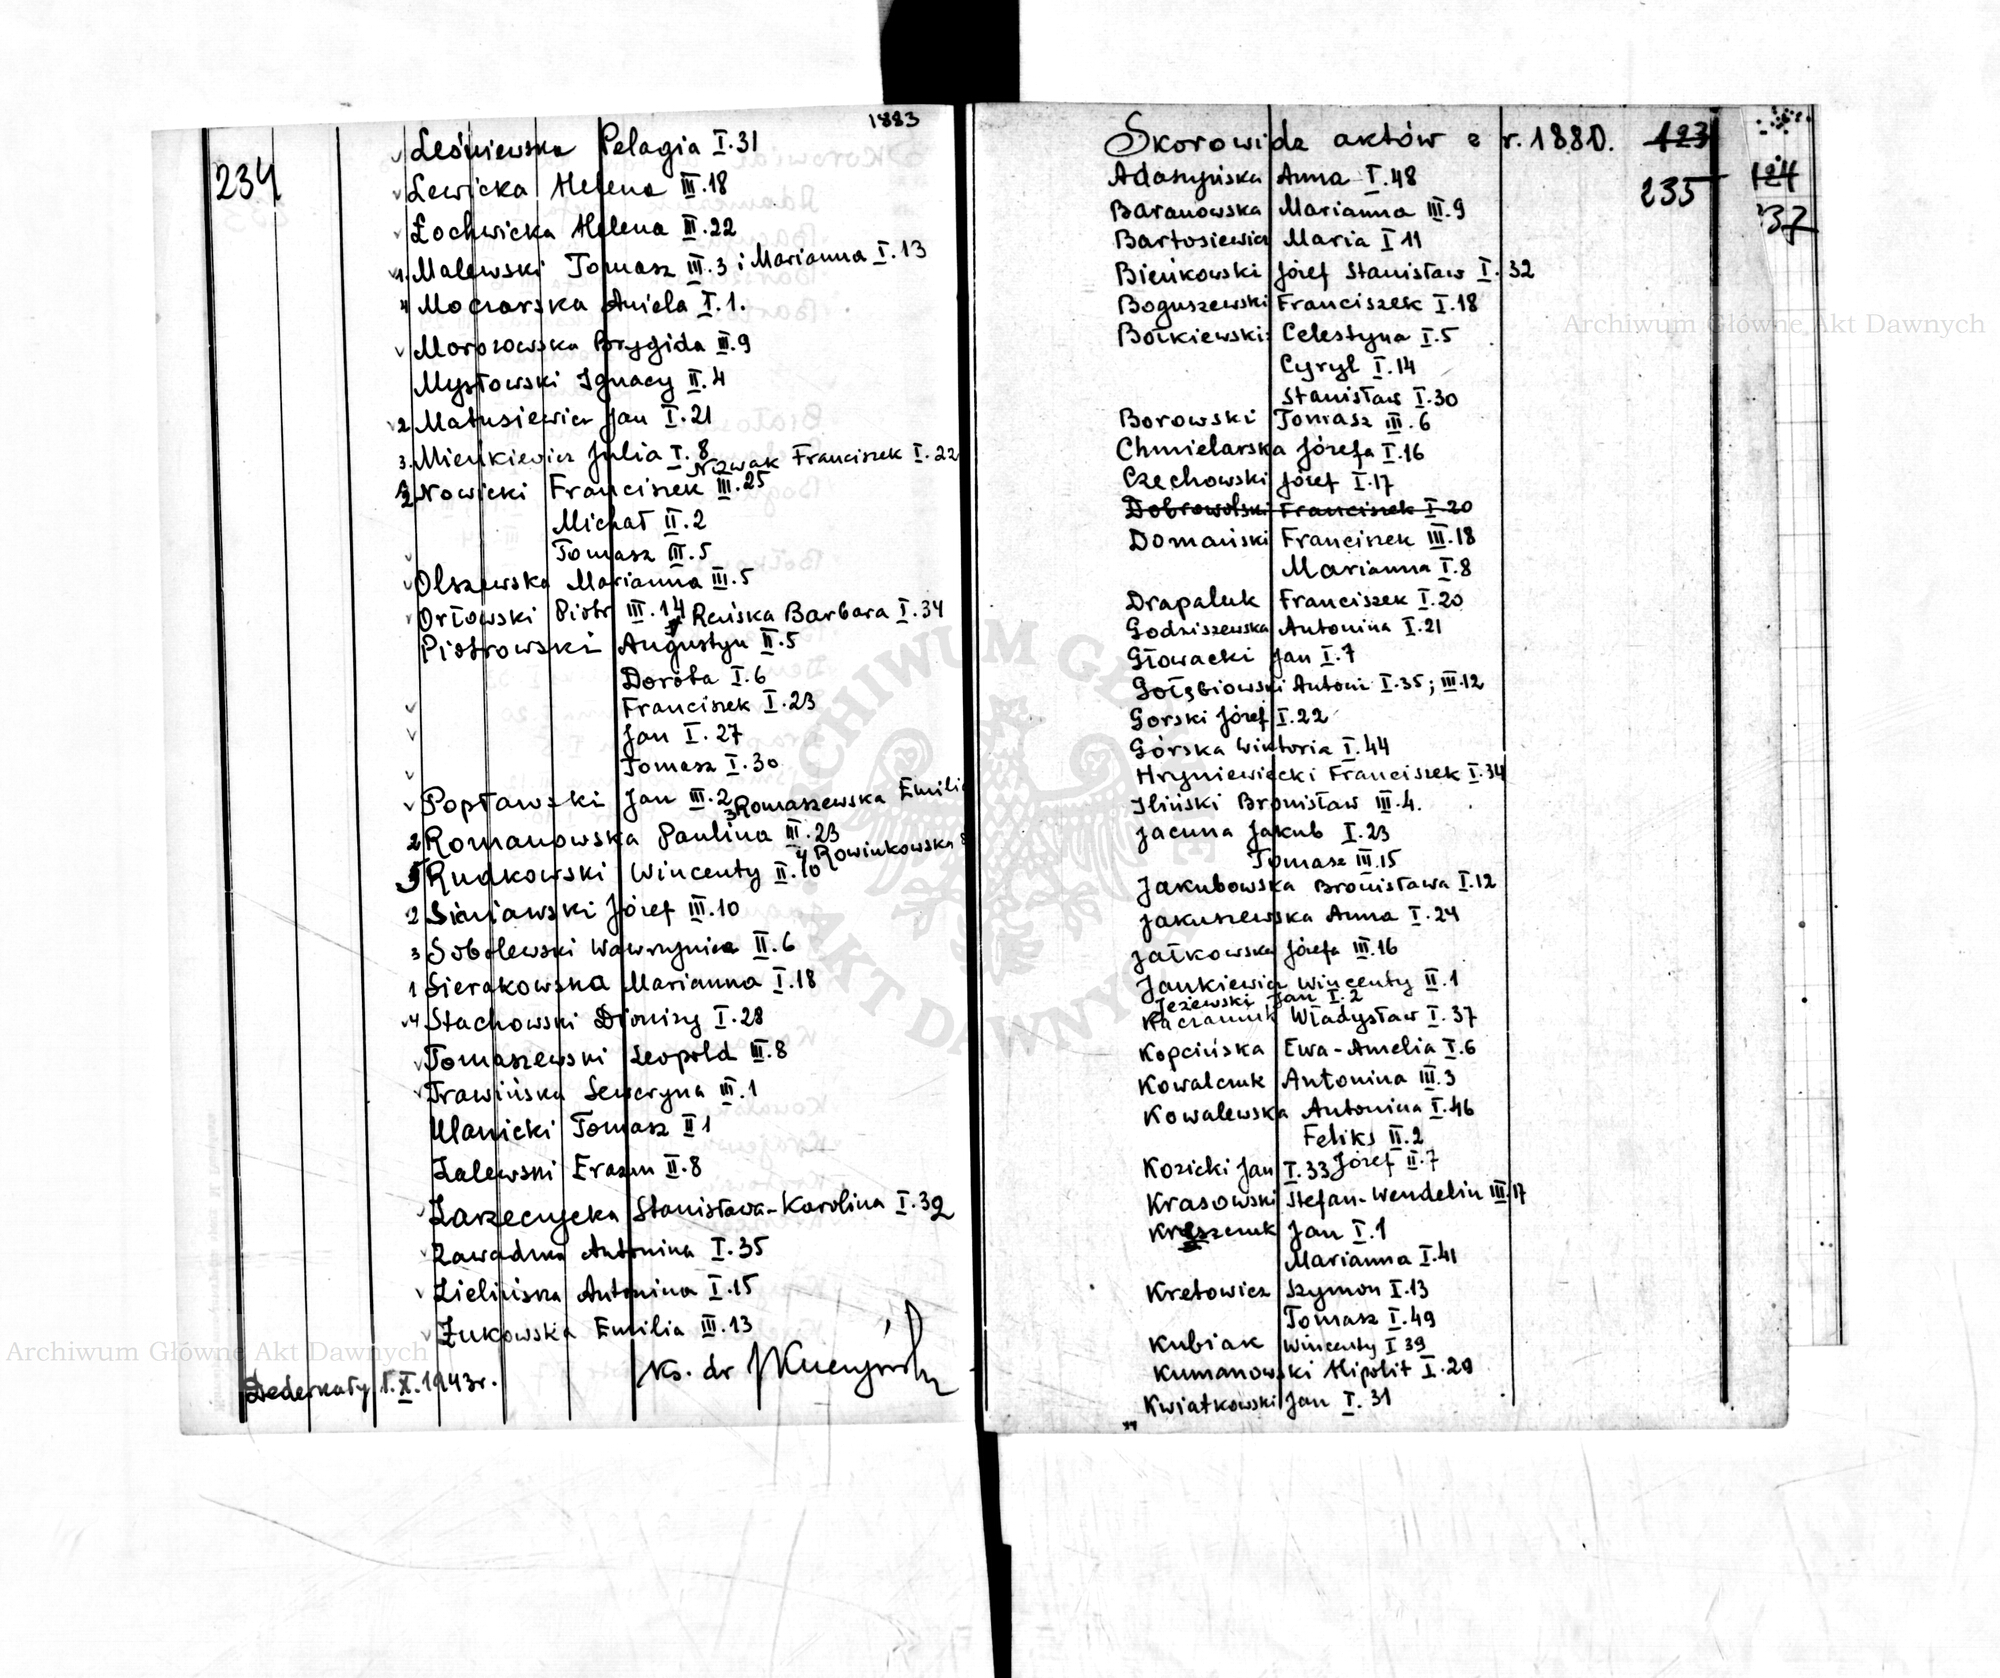 1883
234
Leśniewska Pelagia I.31
Lewicka Helena III.18
Łochwicka Helena III.22
1. Malewski Tomasz III.3 i Marianna I.13
4 Moczarska Aniela I.1.
Morozowska Brygida III.9
Mysłowski Ignacy II.4
2 Matusiewicz Jan I.21
3. Mienkiewicz Julia I.8
Nowak Franciszek I.22
2 Nowicki Franciszek III.25
Michał II.2
Tomasz III.5
Olszewska Marianna III.5
Orłowski Piotr III.14 Reńska Barbara I.34
Piotrowski Augustyn II.5
Dorota I.6
Franciszek I.23
Jan I.27
Tomasz I.30
Popławski Jan III.2 3 Romaszewska Emilia
2 Romanowska Paulina III.23
4 Rowinkowska
5 Rudkowski Wincenty II.10
2 Siniawski Józef III.10
3 Sobolewski Wawrzyniec II.6
1 Sierakowska Marianna I.18
4 Stachowski Dionizy I.28
Tomaszewski Leopold III.8
Trawińska Seweryna III.1
Ulanicki Tomasz II 1
Zalewski Erazm II.8
Zarzeczycka Stanisława-Karolina I.32
Zawadzka Antonina I.35
Zielińska Antonina I.15
Żukowska Emilia III.13
Dederkały 1.X.1943r.
Ks. dr
Skorowidz aktów z r. 1880.
123
235
124
37
Adaszyńska Anna I.48
Baranowska Marianna III.9
Bartosiewicz Maria I 11
Bieńkowski Józef Stanisław I.32
Boguszewski Franciszek I.18
Bołkiewski: Celestyna I.5
Cyryl I.14
Stanisław I.30
Borowski Tomasz III.6
Chmielarska Józefa I.16
Czechowski Józef I.17
Dobrowolski Franciszek I.20
Domański Franciszek III.18
Marianna I.8
Drapaluk Franciszek I.20
Godziszewska Antonina I.21
Głowacki Jan I.7
Gołębiowski Antoni I.35; III.12
Gorski Józef I.22
Górska Wiktoria I.44
Hryniewiecki Franciszek I.34
Iliński Bronisław III.4.
Jacuna Jakub I.23
Tomasz III.15
Jakubowska Bronisława I.12
Jakuszewska Anna I.24
Jałkowska Józefa III.16
Jankiewicz Wincenty II.1
Jeżewski Jan I.2
Kaczaniuk Władysław I.37
Kopcińska Ewa-Amelia I.6
Kowalczuk Antonina III.3
Kowalewska Antonina I.46
Feliks II.2
Józef II.7
Kozicki Jan I.33
Krasowski Stefan-Wendelin III.17
Jan I.1
Marianna I.41
Kretowicz Szymon I.13
Tomasz I.49
Kubiak Wincenty I 39
Kumanowski Hipolit I.29
Kwiatkowski Jan I.31
Archiwum Główne Akt Dawnych
Archiwum Główne Akt Dawnych
ARCHIWUM GŁÓWNE AKT DAWNYCH